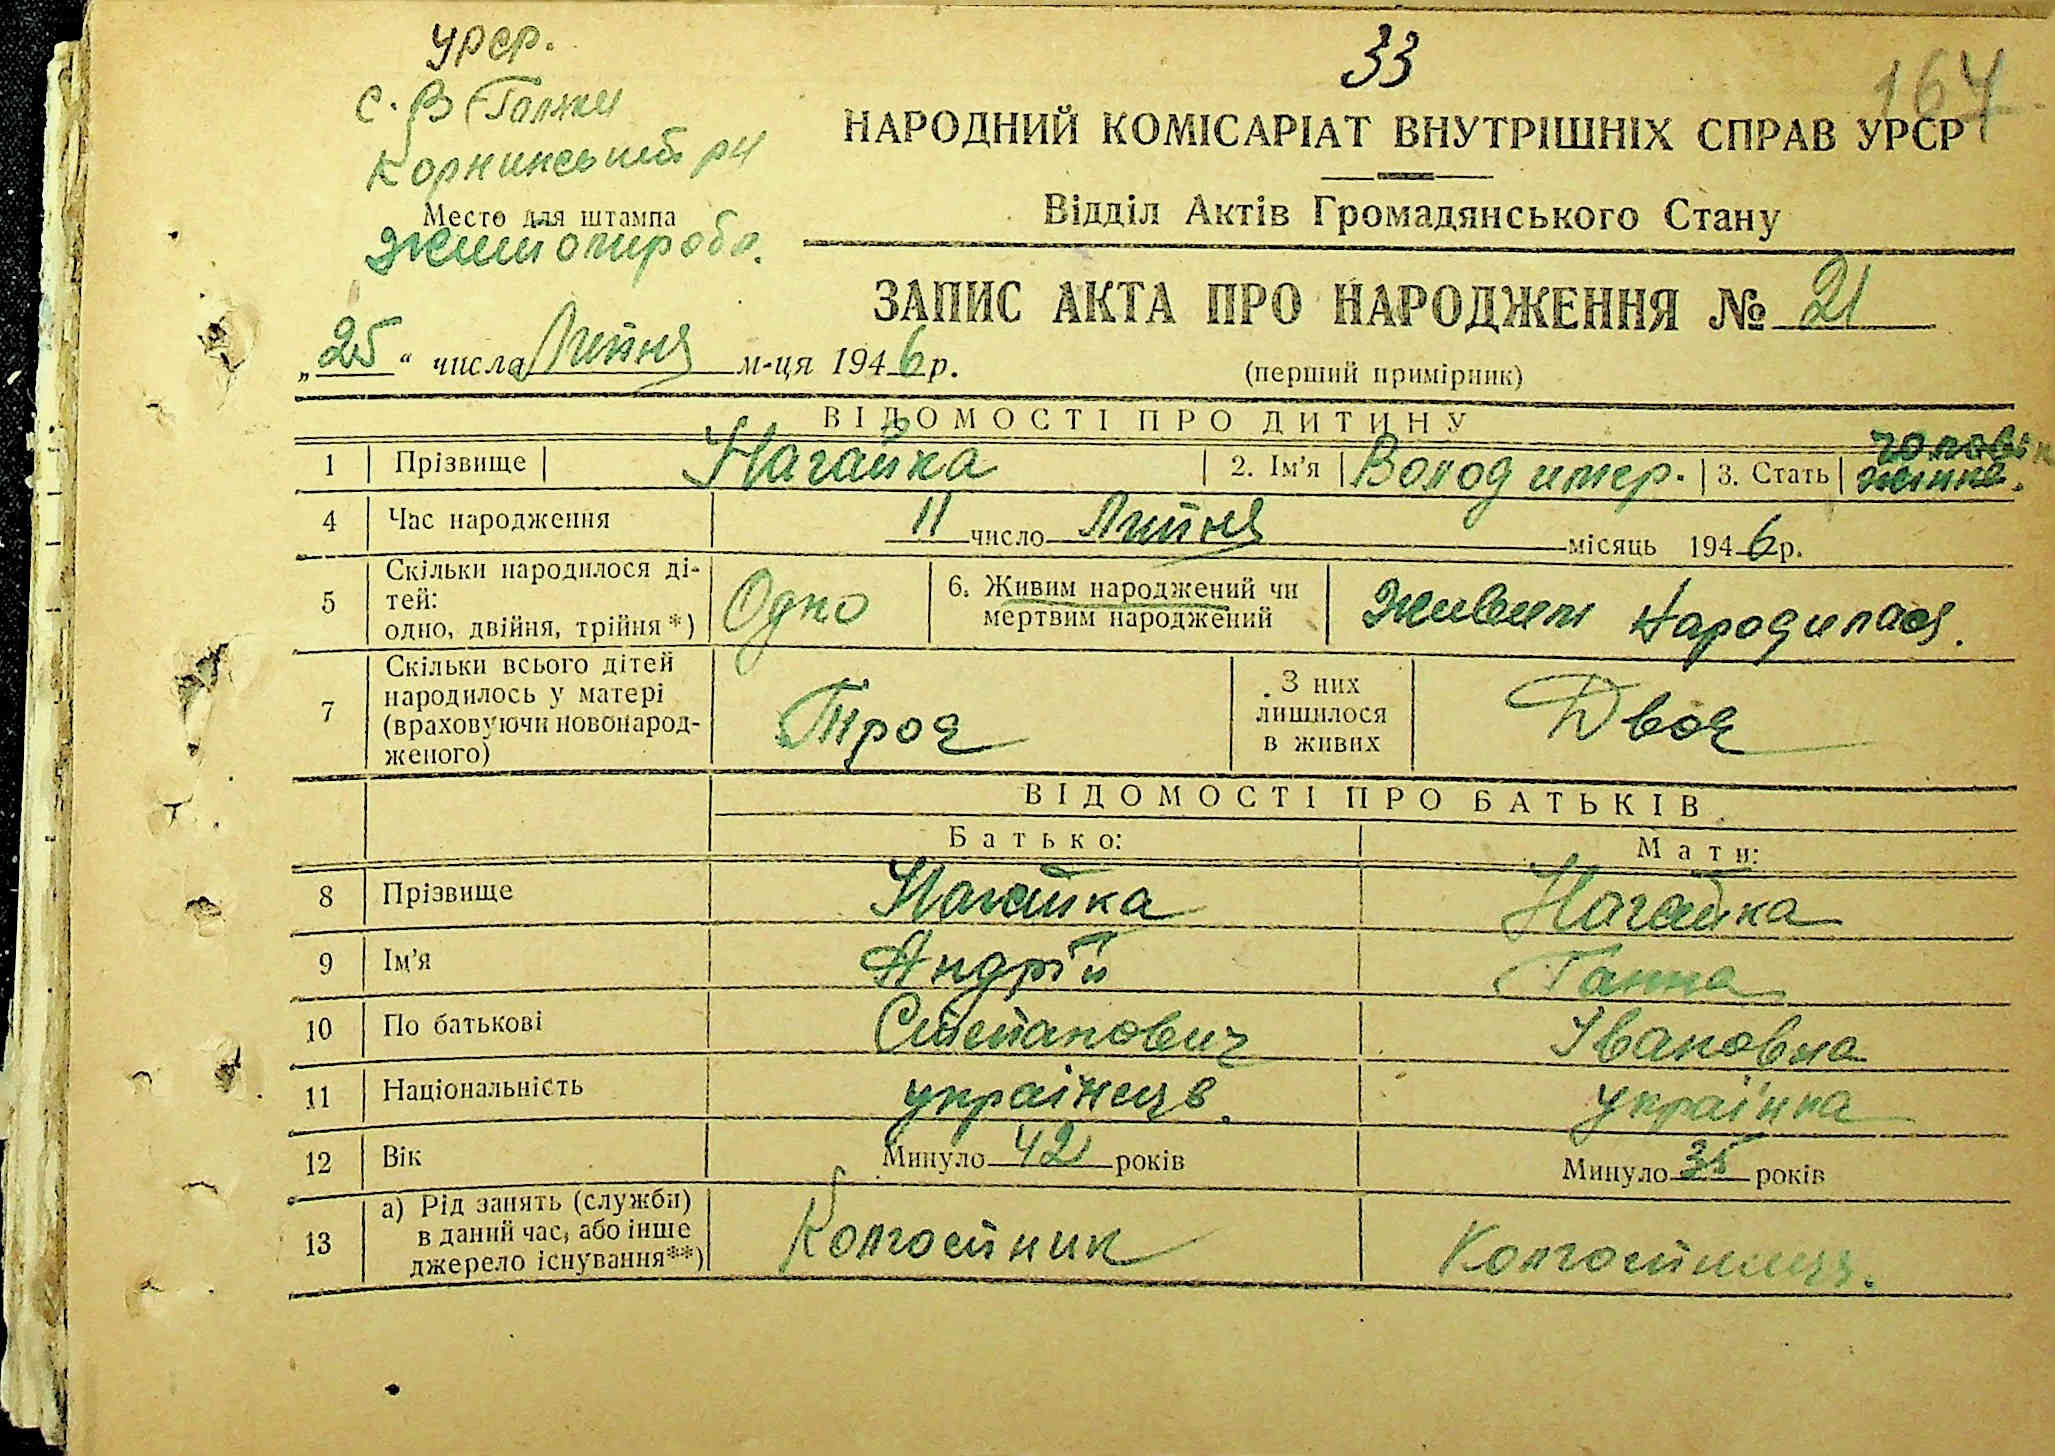 УРСР.
33
164
с. В Голяки
Корнинський рн
НАРОДНИЙ КОМІСАРІАТ ВНУТРІШНІХ СПРАВ УРСР
Место для штампа
Відділ Актів Громадянського Стану
Житомир обл.
ЗАПИС АКТА ПРО НАРОДЖЕННЯ № 21
„25“ числа Липня м-ця 1946 р.
(перший примірник)
ВІДОМОСТІ ПРО ДИТИНУ
1 Прізвище Нагайка 2. Ім'я Володимер. 3. Стать чоловіч
4 Час народження 11 число Липня місяць 1946 р.
5 Скільки народилося ді-
тей:
одно, двійня, трійня *) Одно
6. Живим народжений чи
мертвим народжений Живим народилася.
7 Скільки всього дітей
народилось у матері
(враховуючи новонарод-
женого) Троя
З них
лишилося
в живих Двоя
ВІДОМОСТІ ПРО БАТЬКІВ
Батько: Мати:
8 Прізвище Нагайка Нагайка
9 Ім'я Андрій Ганна
10 По батькові Степанович Івановна
11 Національність українець. українка
12 Вік Минуло 42 років Минуло 35 років
13 а) Рід занять (служби)
в даний час, або інше
джерело існування**) Колгоспник Колгоспниця.